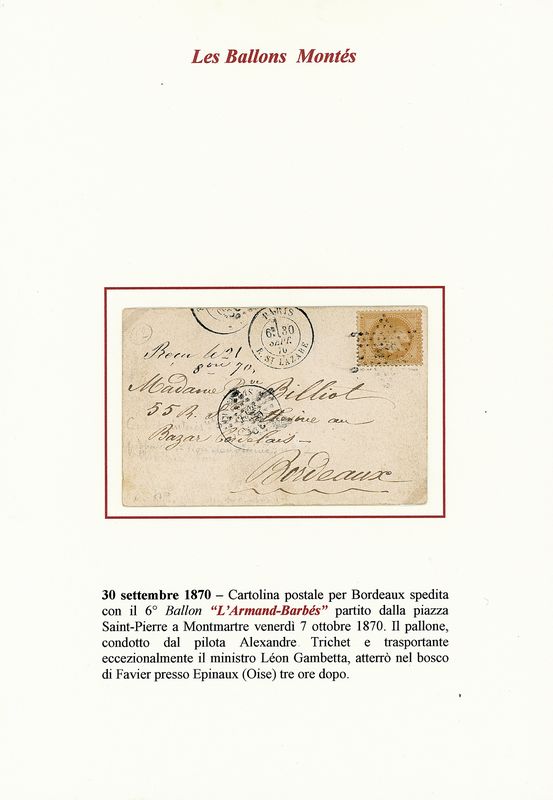 Les Ballons Montés
PARIS
6E 30
SEPT.
70
R. ST LAZARE
Recu le 21
8bre 70,
Madame Billiot
55 R. Ste Catherine au
Bazar Bordelais
Bordeaux
30 settembre 1870 – Cartolina postale per Bordeaux spedita
con il 6° Ballon “L’Armand-Barbés” partito dalla piazza
Saint-Pierre a Montmartre venerdì 7 ottobre 1870. Il pallone,
condotto dal pilota Alexandre Trichet e trasportante
eccezionalmente il ministro Léon Gambetta, atterrò nel bosco
di Favier presso Epinaux (Oise) tre ore dopo.